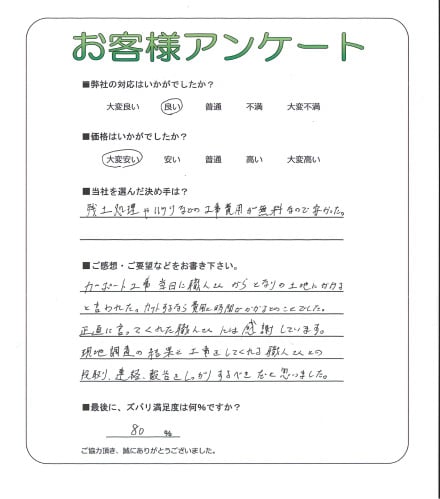 お客様アンケート
■弊社の対応はいかがでしたか?
大変良い 良い 普通 不満 大変不満
■価格はいかがでしたか?
大変安い 安い 普通 高い 大変高い
■当社を選んだ決め手は?
残土処理やハツリなどの工事費用が無料なので安かった。
■ご感想・ご要望などをお書き下さい。
カーポート工事当日に職人さんからとなりの土地にかかる
と言われた。カットするなら費用と時間がかかるとのことでした。
正直に言ってくれた職人さんには感謝しています。
現地調査の結果と工事をしてくれる職人さんとの
段取り、連絡、報告をしっかりするべきだと思いました。
■最後に、ズバリ満足度は何%ですか?
80 %
ご協力頂き、誠にありがとうございました。